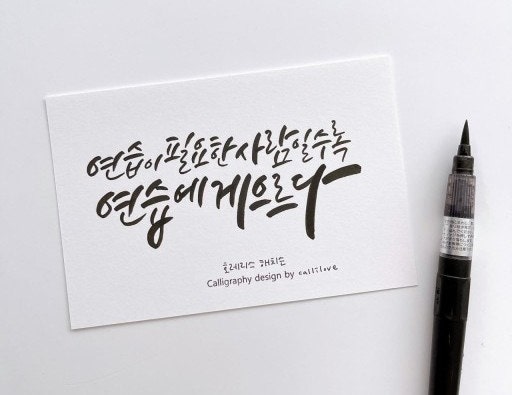 연습이 필요한 사람일수록
연습에 게으르다
호레리스 해치슨
Calligraphy design by calli;love